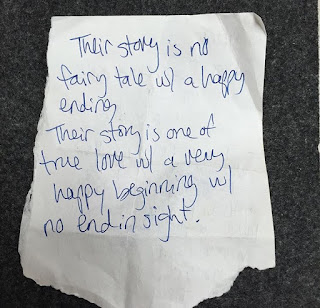 Their story is no
fairy tale w/ a happy
ending,
Their story is one of
true love w/ a very
happy beginning w/
no end in sight.